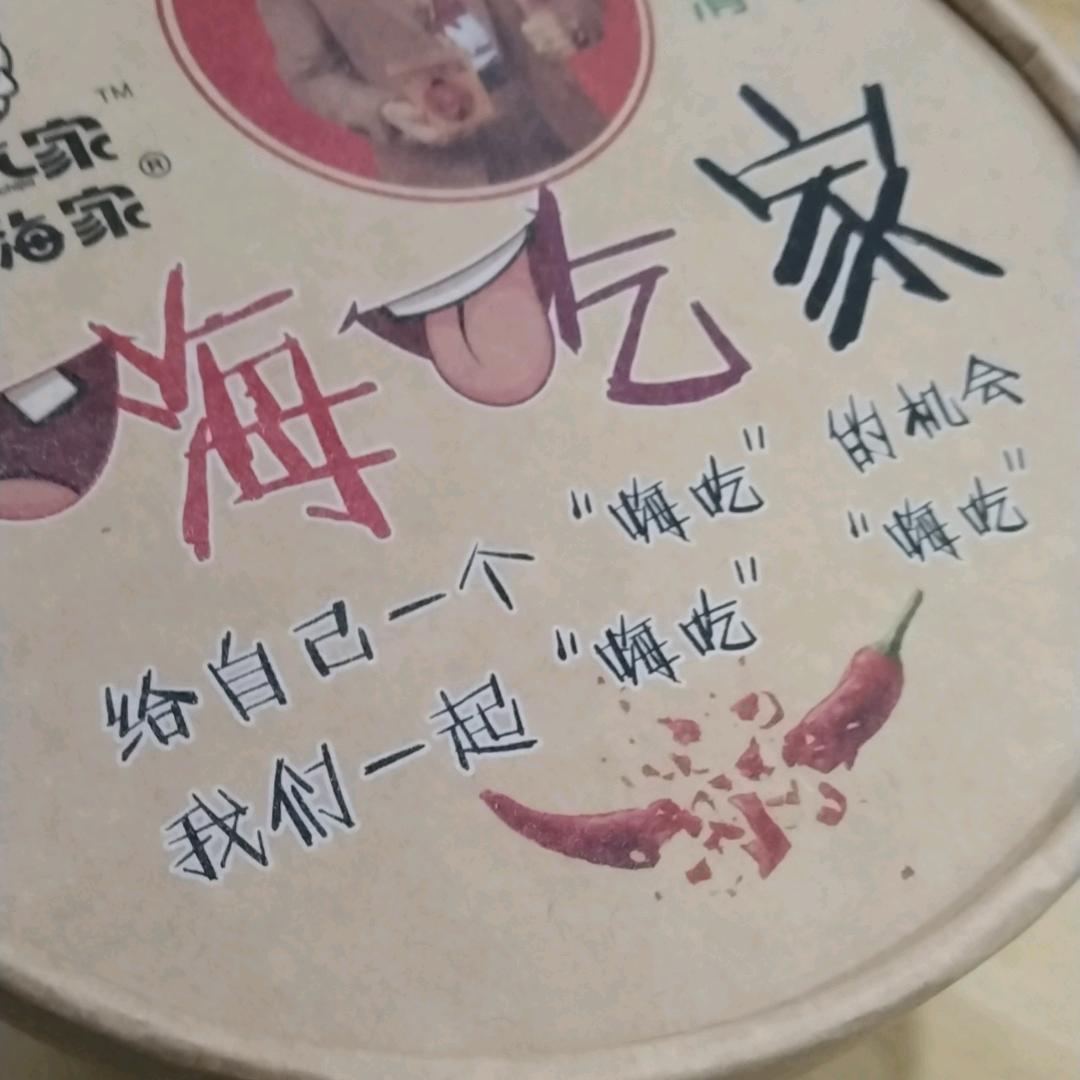 家™
海家®
嗨吃家
给自己一个“嗨吃”的机会
我们一起“嗨吃”“嗨吃”